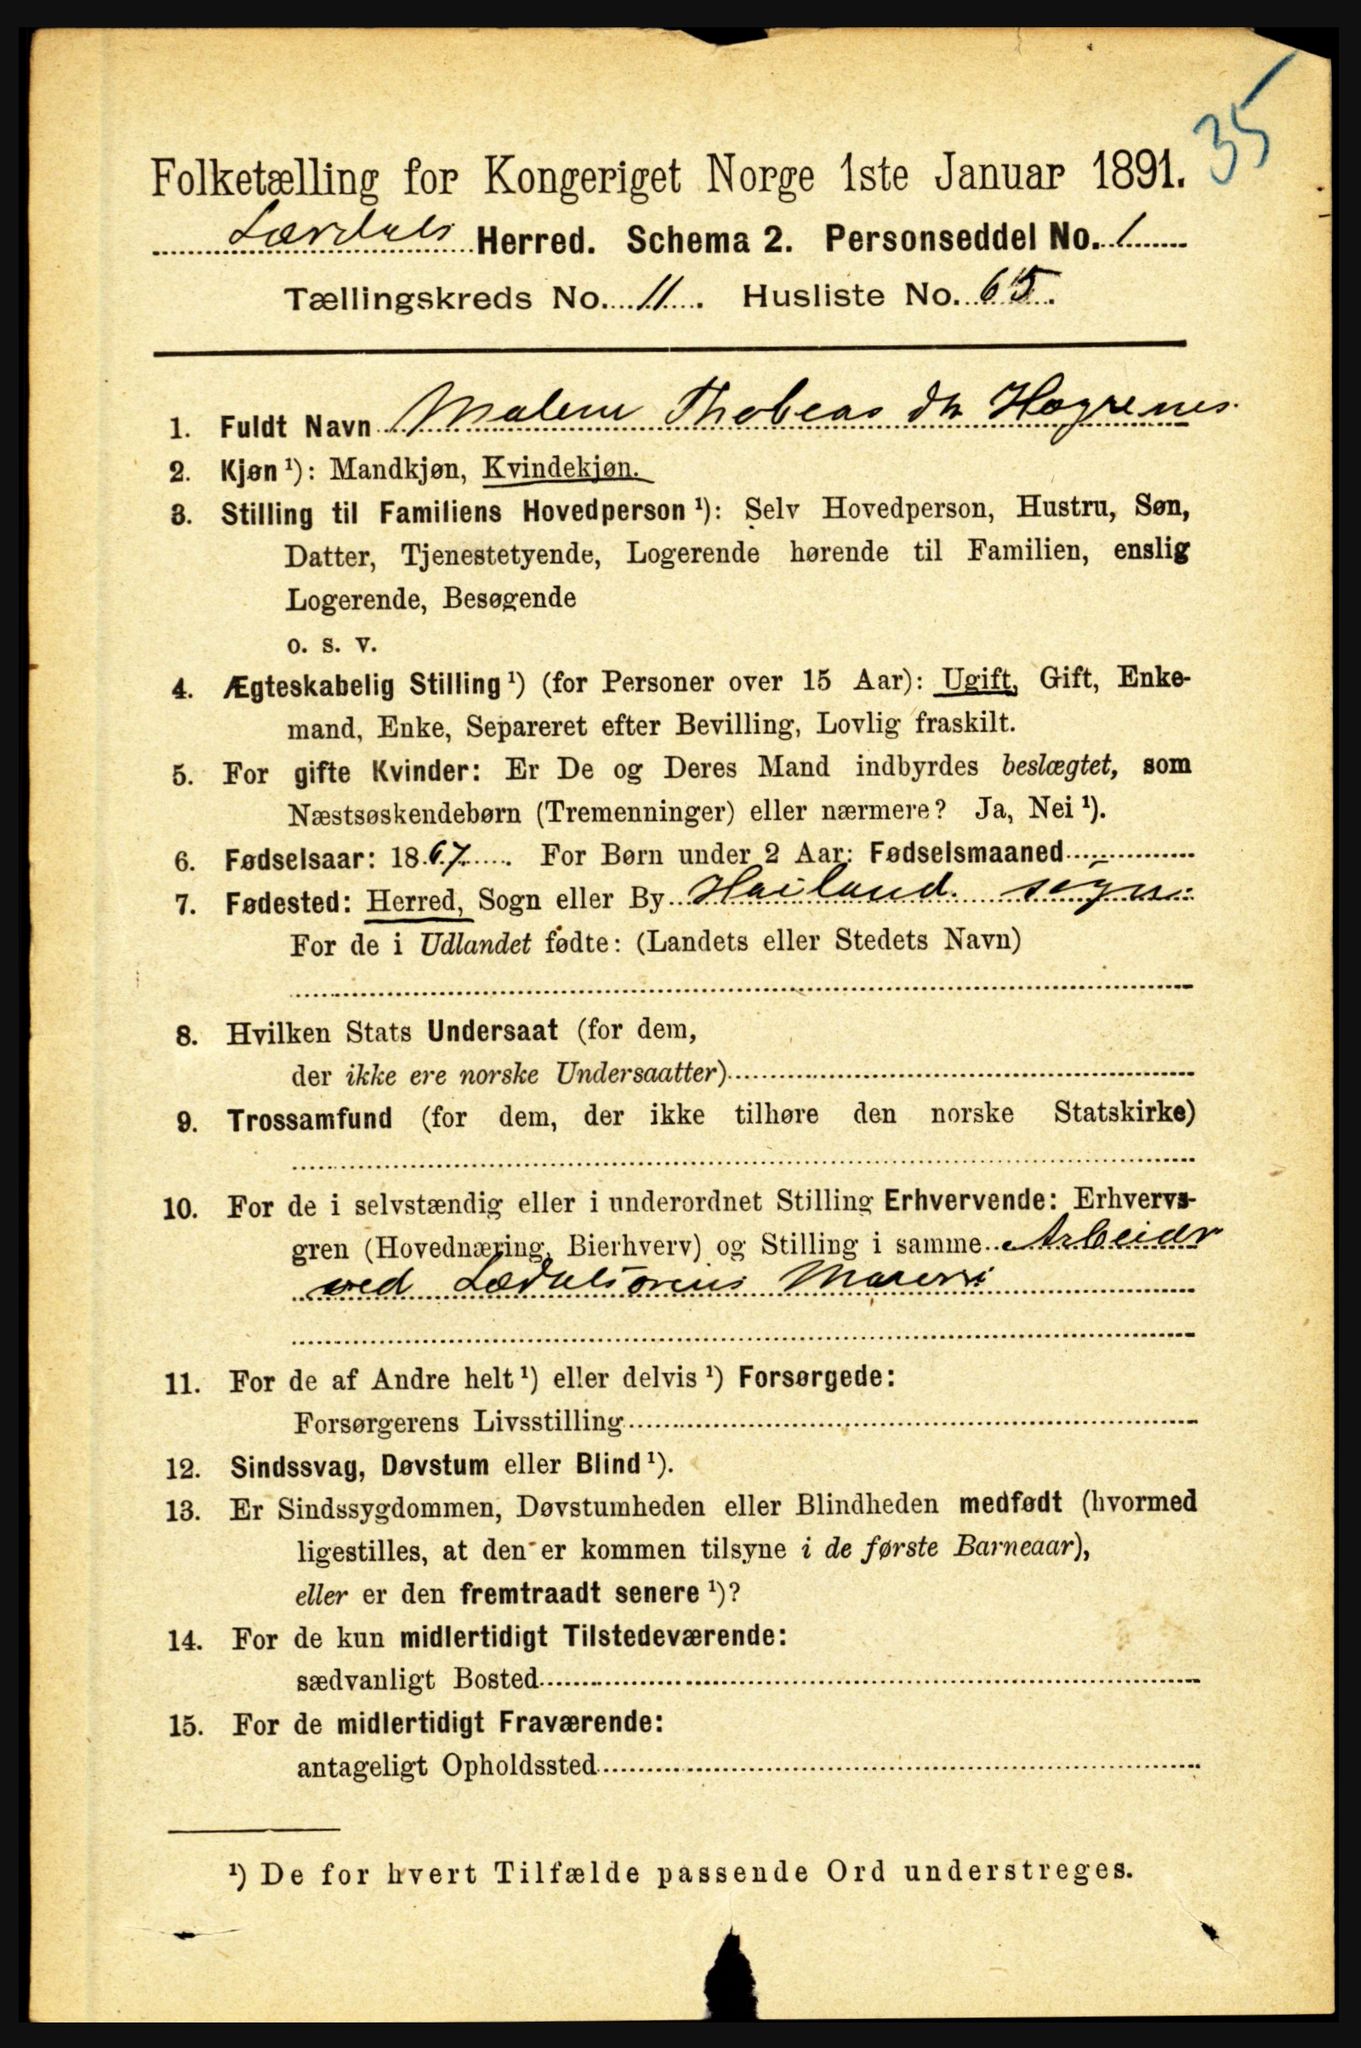 35
Folketælling for Kongeriget Norge 1ste Januar 1891.
Lærdals Herred. Schema 2. Personseddel No. 1
Tællingskreds No. 11. Husliste No. 65.
1. Fuldt Navn Malene Thobeas dtr Hægrenes.
2. Kjøn ¹): Mandkjøn, Kvindekjøn.
3. Stilling til Familiens Hovedperson ¹): Selv Hovedperson, Hustru, Søn,
Datter, Tjenestetyende, Logerende hørende til Familien, enslig
Logerende, Besøgende
o. s. v.
4. Ægteskabelig Stilling ¹) (for Personer over 15 Aar): Ugift, Gift, Enke-
mand, Enke, Separeret efter Bevilling, Lovlig fraskilt.
5. For gifte Kvinder: Er De og Deres Mand indbyrdes beslægtet, som
Næstsøskendebørn (Tremenninger) eller nærmere? Ja, Nei ¹).
6. Fødselsaar: 1867. For Børn under 2 Aar: Fødselsmaaned
7. Fødested: Herred, Sogn eller By sogn
For de i Udlandet fødte: (Landets eller Stedets Navn)
8. Hvilken Stats Undersaat (for dem,
der ikke ere norske Undersaatter)
9. Trossamfund (for dem, der ikke tilhøre den norske Statskirke)
10. For de i selvstændig eller i underordnet Stilling Erhvervende: Erhvervs-
gren (Hovednæring, Bierhverv) og Stilling i samme Arbeidr
ved Lædalsørens
11. For de af Andre helt ¹) eller delvis ¹) Forsørgede:
Forsørgerens Livsstilling
12. Sindssvag, Døvstum eller Blind ¹).
13. Er Sindssygdommen, Døvstumheden eller Blindheden medfødt (hvormed
ligestilles, at den er kommen tilsyne i de første Barneaar),
eller er den fremtraadt senere ¹)?
14. For de kun midlertidigt Tilstedeværende:
sædvanligt Bosted
15. For de midlertidigt Fraværende:
antageligt Opholdssted
¹) De for hvert Tilfælde passende Ord understreges.